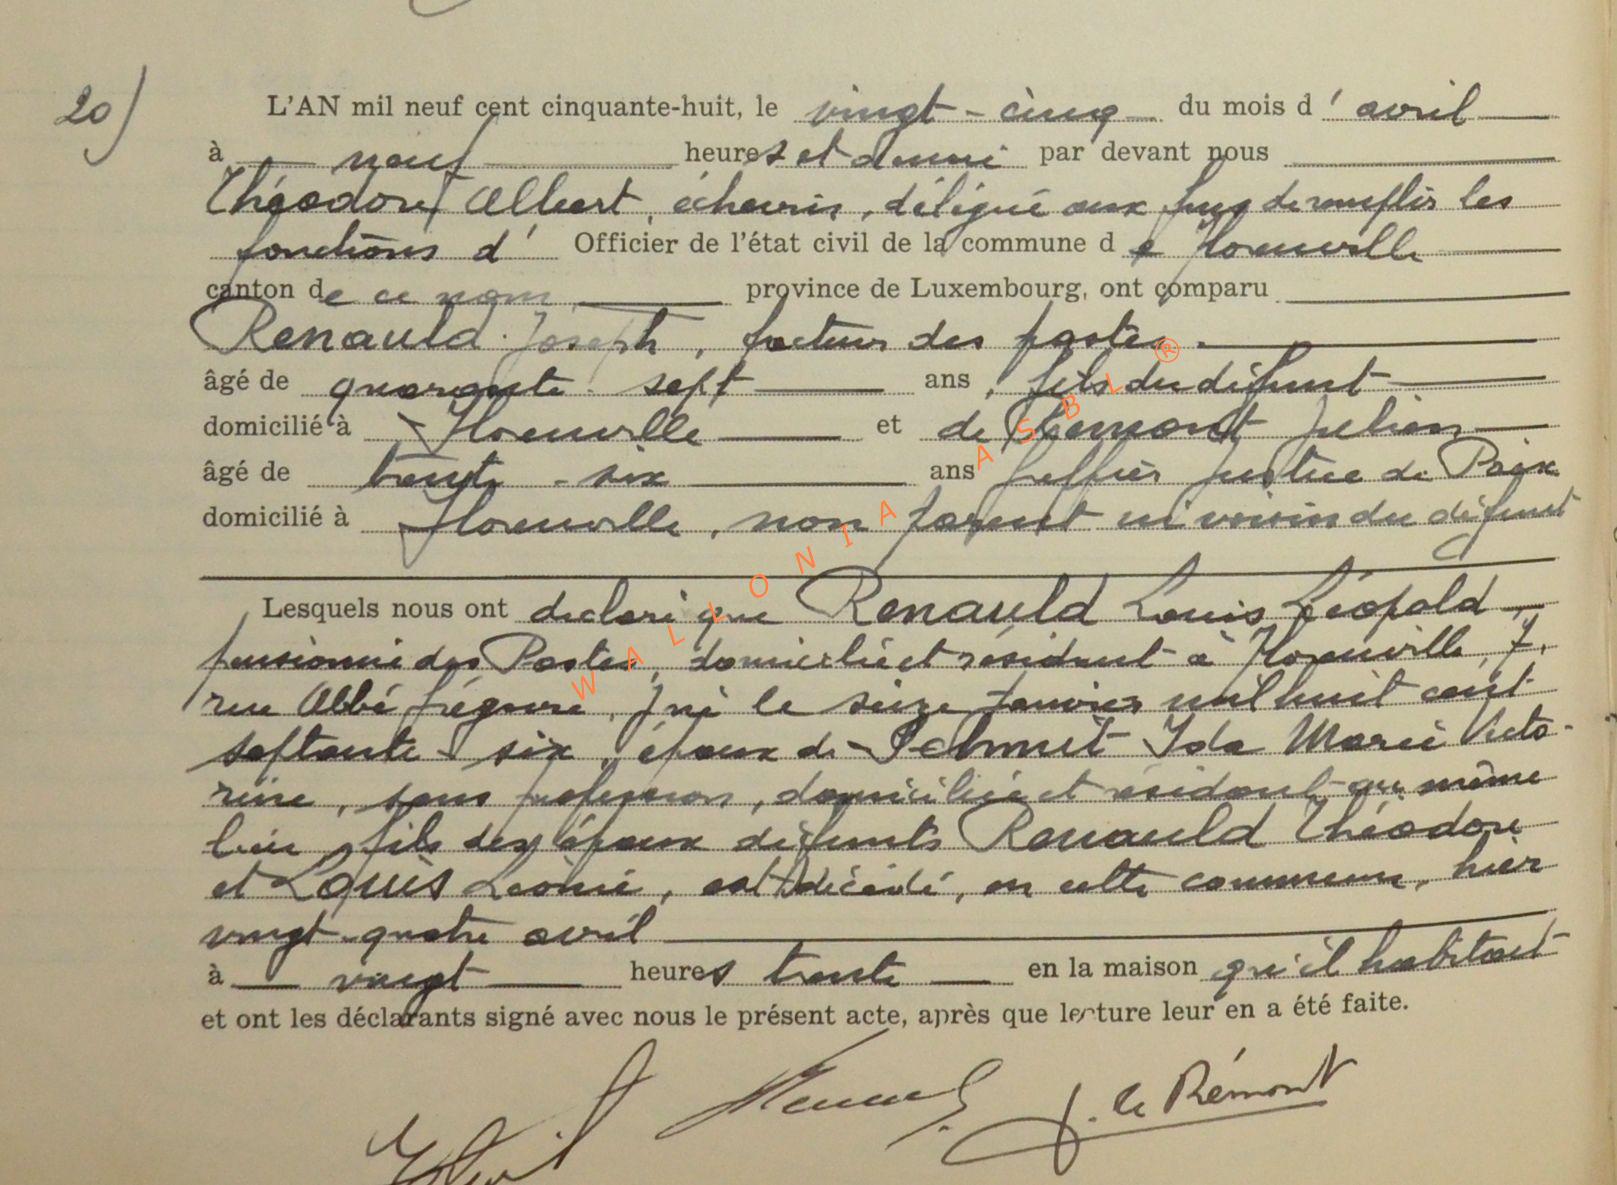 20)
L'AN mil neuf cent cinquante-huit, le vingt-cinq du mois d'avril
à neuf heures et demi par devant nous
Théodore Albert, échevin, délégué aux fins de remplir les
fonctions d' Officier de l'état civil de la commune de Florenville
canton de ce nom province de Luxembourg, ont comparu
Renauld Joseph, facteur des postes
âgé de quarante sept ans, fils du défunt
domicilié à Florenville et de Rémont Julien
âgé de trente-six ans greffier Justice de Paix
domicilié à Florenville, non parent ni voisin du défunt
Lesquels nous ont déclaré que Renauld Louis Léopold
pensionné des Postes, domicilié et résidant à Florenville, 7,
rue Abbé, né le seize janvier mil huit cent
septante-six, époux de Schmit Ida Marie Victo-
rine, sans profession, domiciliée et résidant au même
lieu, fils des époux défunts Renauld Théodore
et Louis Léonie, est décédé, en cette commune, hier
vingt-quatre avril
à vingt heures trente en la maison qu'il habitait
et ont les déclarants signé avec nous le présent acte, après que lecture leur en a été faite.
J. le Rémont
WALLONIA ASBL ®